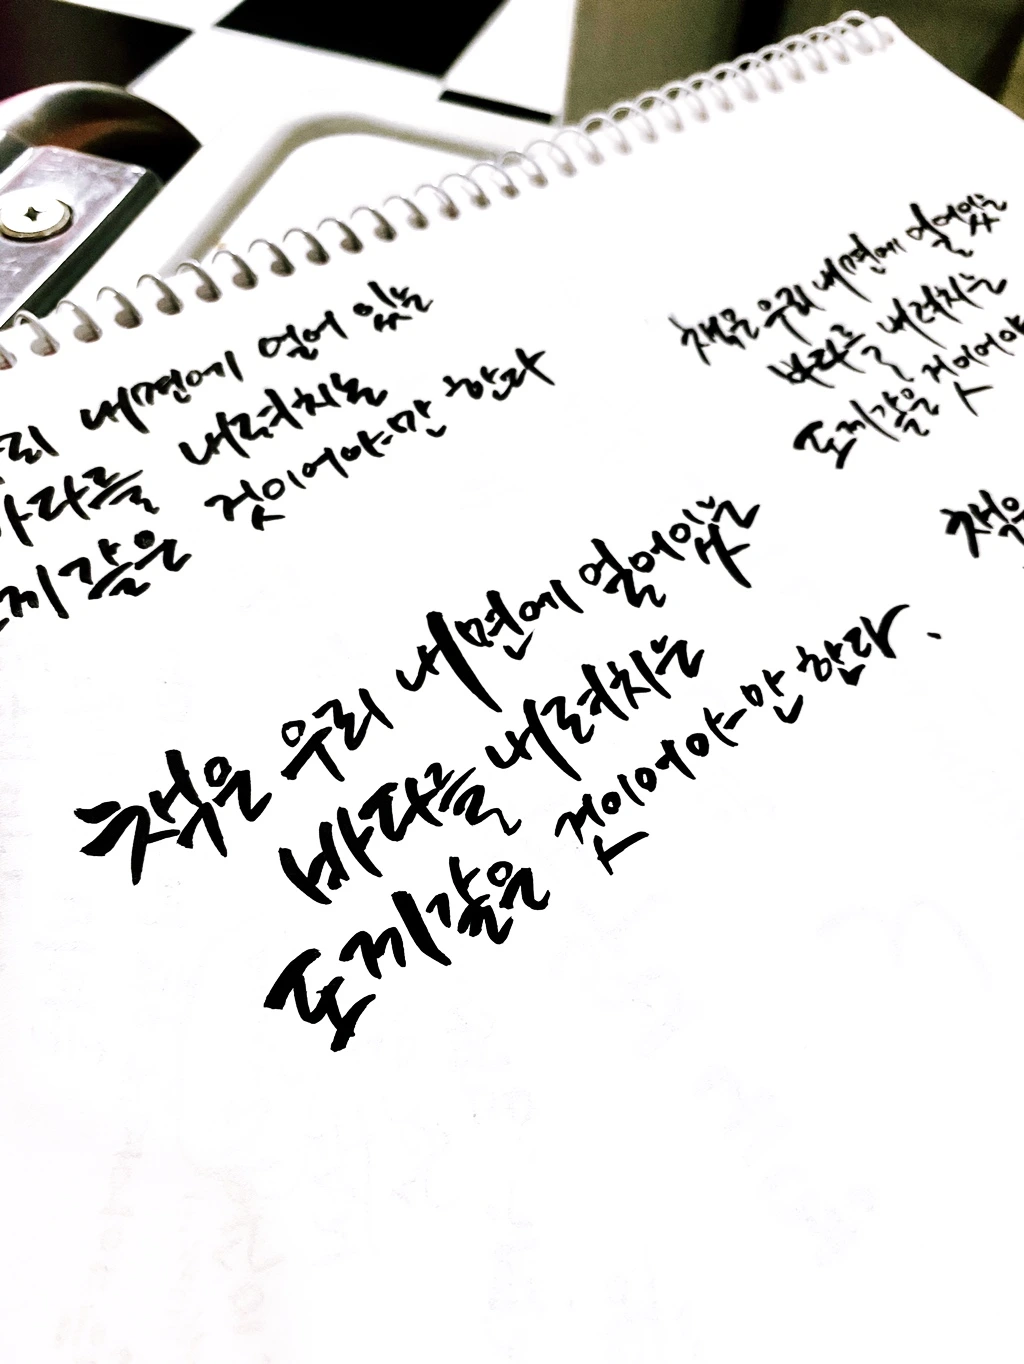 리 내면에 얼어 있는
바다를 내려치는
끼 같은 것이어야만 한다
책은 우리 내면에 얼어있는
바다를 내려치는
도끼같은 것이어야
책은
책은 우리 내면에 얼어있는
바다를 내려치는
도끼같은 것이어야만 한다.